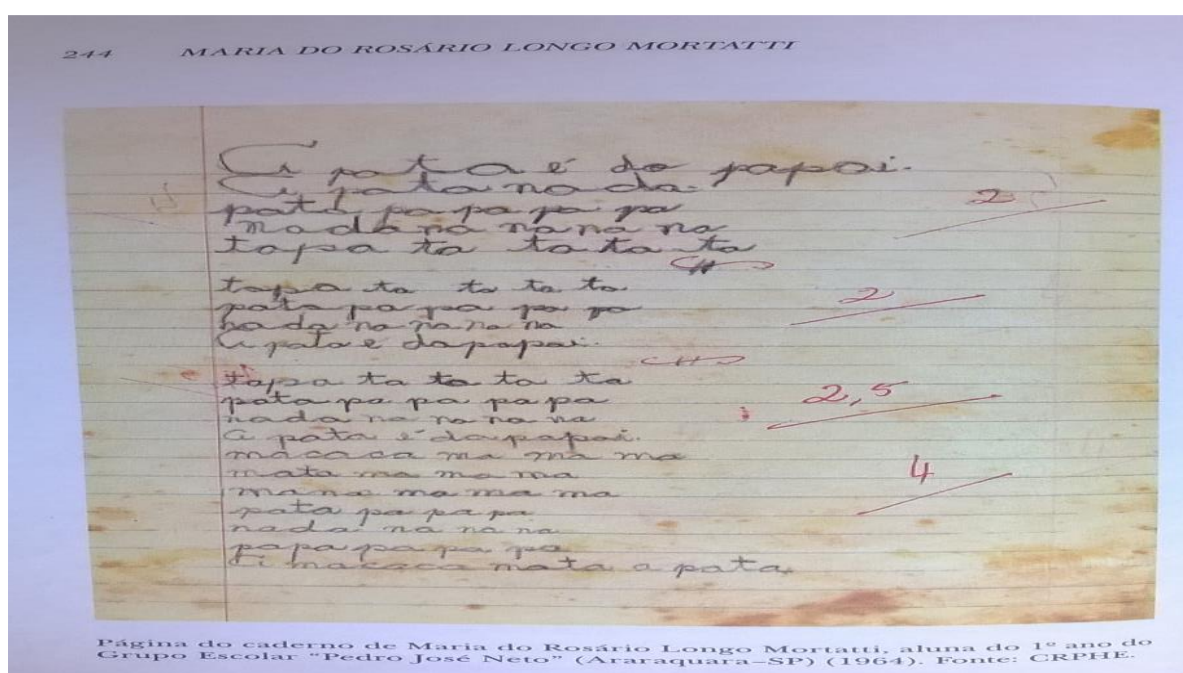 244 MARIA DO ROSÁRIO LONGO MORTATTI
A pata é do papai.
A pata nada.
pata, pa pa pa pa
nada na na na na
tapa ta ta ta ta
2
tapa ta ta ta ta
pata pa pa pa pa
nada na na na na
A pata é do papai.
2
tapa ta ta ta ta
pata pa pa pa pa
nada na na na na
a pata é do papai.
2,5
macaca ma ma ma
mata ma ma ma
mana ma ma ma
pata pa pa pa
nada na na na
papa pa pa pa
A macaca mata a pata.
4
Página do caderno de Maria do Rosário Longo Mortatti, aluna do 1º ano do
Grupo Escolar "Pedro José Neto" (Araraquara–SP) (1964). Fonte: CRPHE.